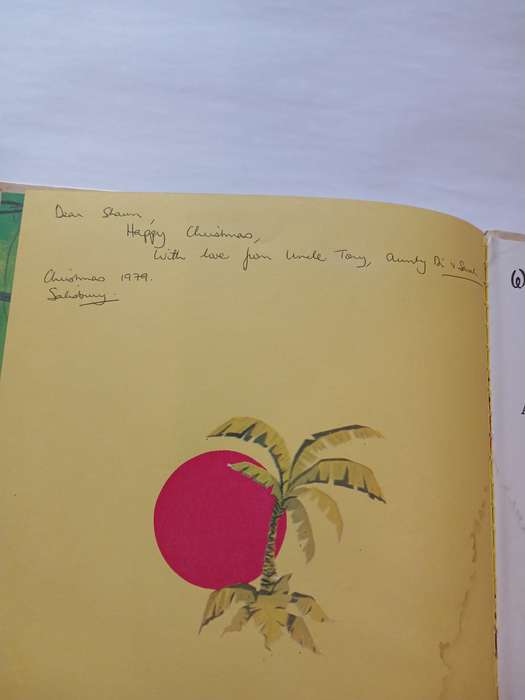 Dear Shaun,
Happy Christmas,
With love from Uncle Tony, Aunty Di &
Christmas 1979.
Salisbury.